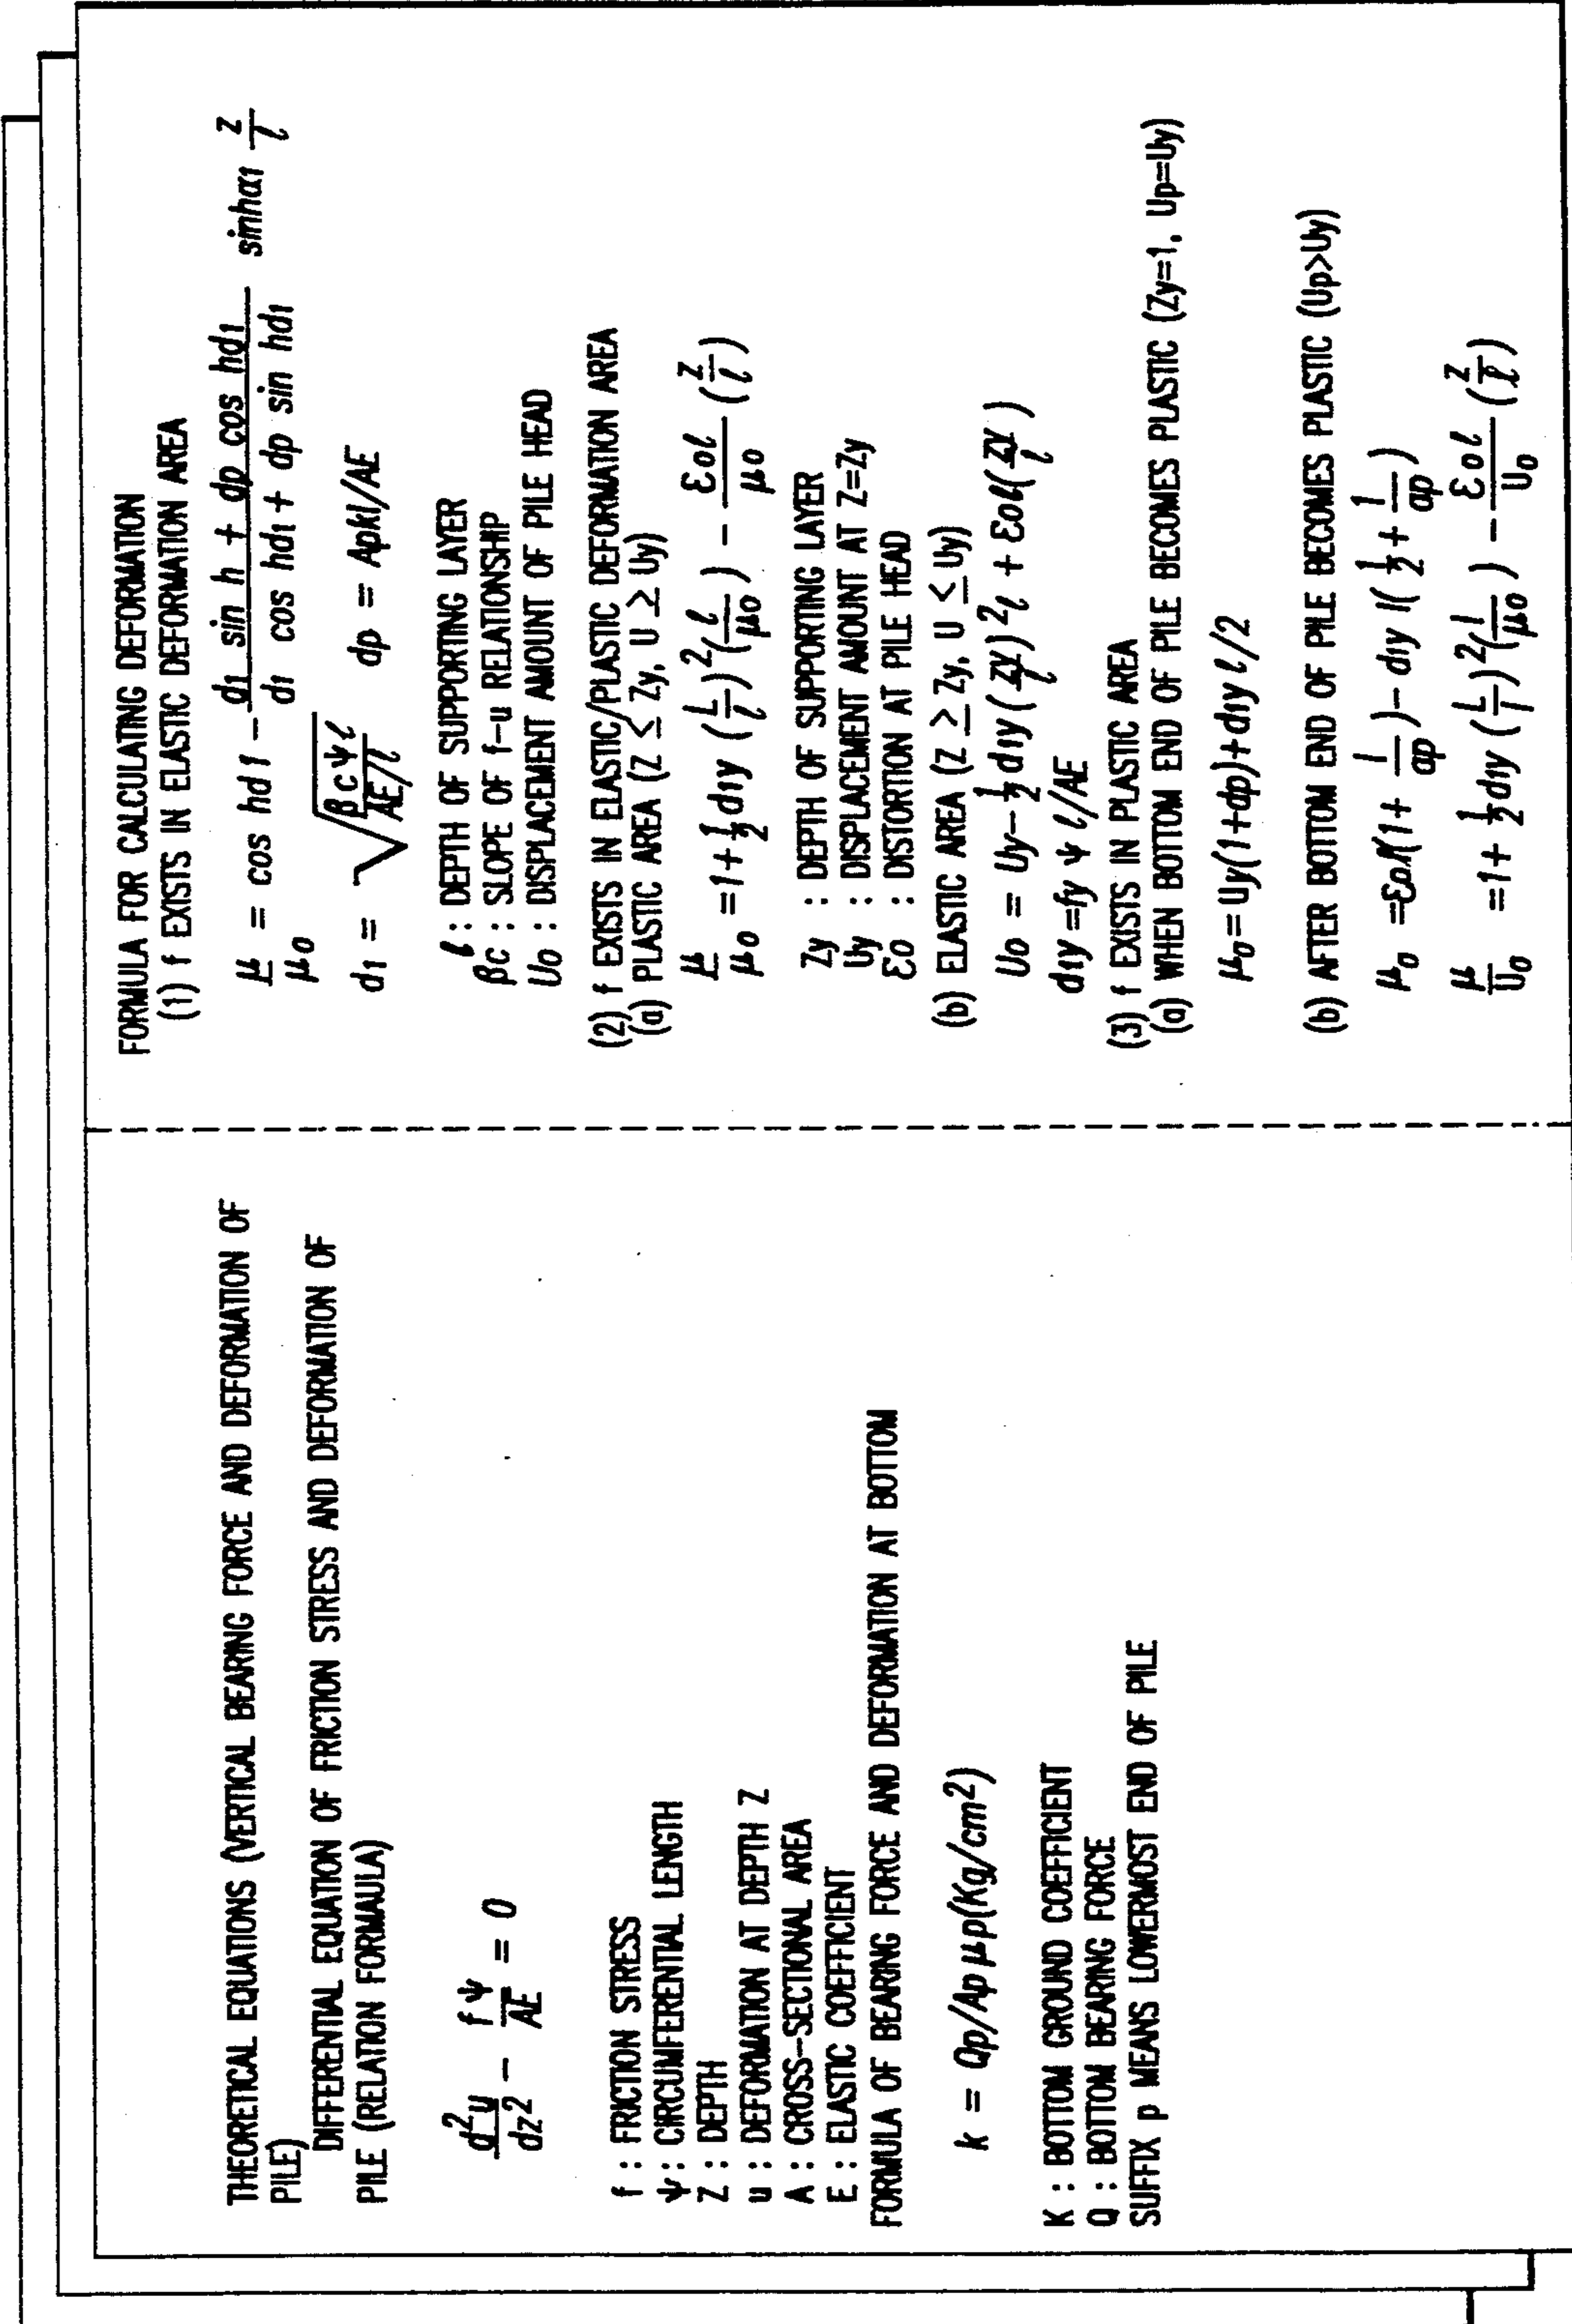 THEORETICAL EQUATIONS (VERTICAL BEARING FORCE AND DEFORMATION OF
PILE)
DIFFERENTIAL EQUATION OF FRICTION STRESS AND DEFORMATION OF
PILE (RELATION FORMAULA)
d²u/dz² − fψ/AE = 0
f : FRICTION STRESS
ψ : CIRCUMFERENTIAL LENGTH
Z : DEPTH
u : DEFORMATION AT DEPTH Z
A : CROSS-SECTIONAL AREA
E : ELASTIC COEFFICIENT
FORMULA OF BEARING FORCE AND DEFORMATION AT BOTTOM
k = Qp/Ap μp(Kg/cm²)
K : BOTTOM GROUND COEFFICIENT
Q : BOTTOM BEARING FORCE
SUFFIX p MEANS LOWERMOST END OF PILE
FORMULA FOR CALCULATING DEFORMATION
(1) f EXISTS IN ELASTIC DEFORMATION AREA
μ/μ0 = cos hd1 − (d1 sin h + dp cos hd1)/(d1 cos hd1 + dp sin hd1) sinhα1 z/ℓ
d1 = √(βcψℓ/AE/ℓ) dp = Apkl/AE
ℓ : DEPTH OF SUPPORTING LAYER
βc : SLOPE OF f-u RELATIONSHIP
U0 : DISPLACEMENT AMOUNT OF PILE HEAD
(2) f EXISTS IN ELASTIC/PLASTIC DEFORMATION AREA
(a) PLASTIC AREA (Z ≤ Zy, U ≥ Uy)
μ/μ0 = 1 + ½ d1y (L/ℓ)²(ℓ/μ0) − ε0ℓ/μ0 (z/ℓ)
Zy : DEPTH OF SUPPORTING LAYER
Uy : DISPLACEMENT AMOUNT AT Z=Zy
ε0 : DISTORTION AT PILE HEAD
(b) ELASTIC AREA (Z ≥ Zy, U ≤ Uy)
U0 = Uy − ½ d1y (zy/ℓ)²ℓ + ε0ℓ(zy/ℓ)
d1y = fy ψ ℓ/AE
(3) f EXISTS IN PLASTIC AREA
(a) WHEN BOTTOM END OF PILE BECOMES PLASTIC (Zy=1, Up=Uy)
μ0 = Uy(1+dp)+d1y ℓ/2
(b) AFTER BOTTOM END OF PILE BECOMES PLASTIC (Up>Uy)
μ0 = ε0ℓ(1 + 1/ap) − d1y l(1/2 + 1/ap)
μ/U0 = 1 + ½ d1y (L/l)²(1/μ0) − ε0ℓ/U0 (z/ℓ)